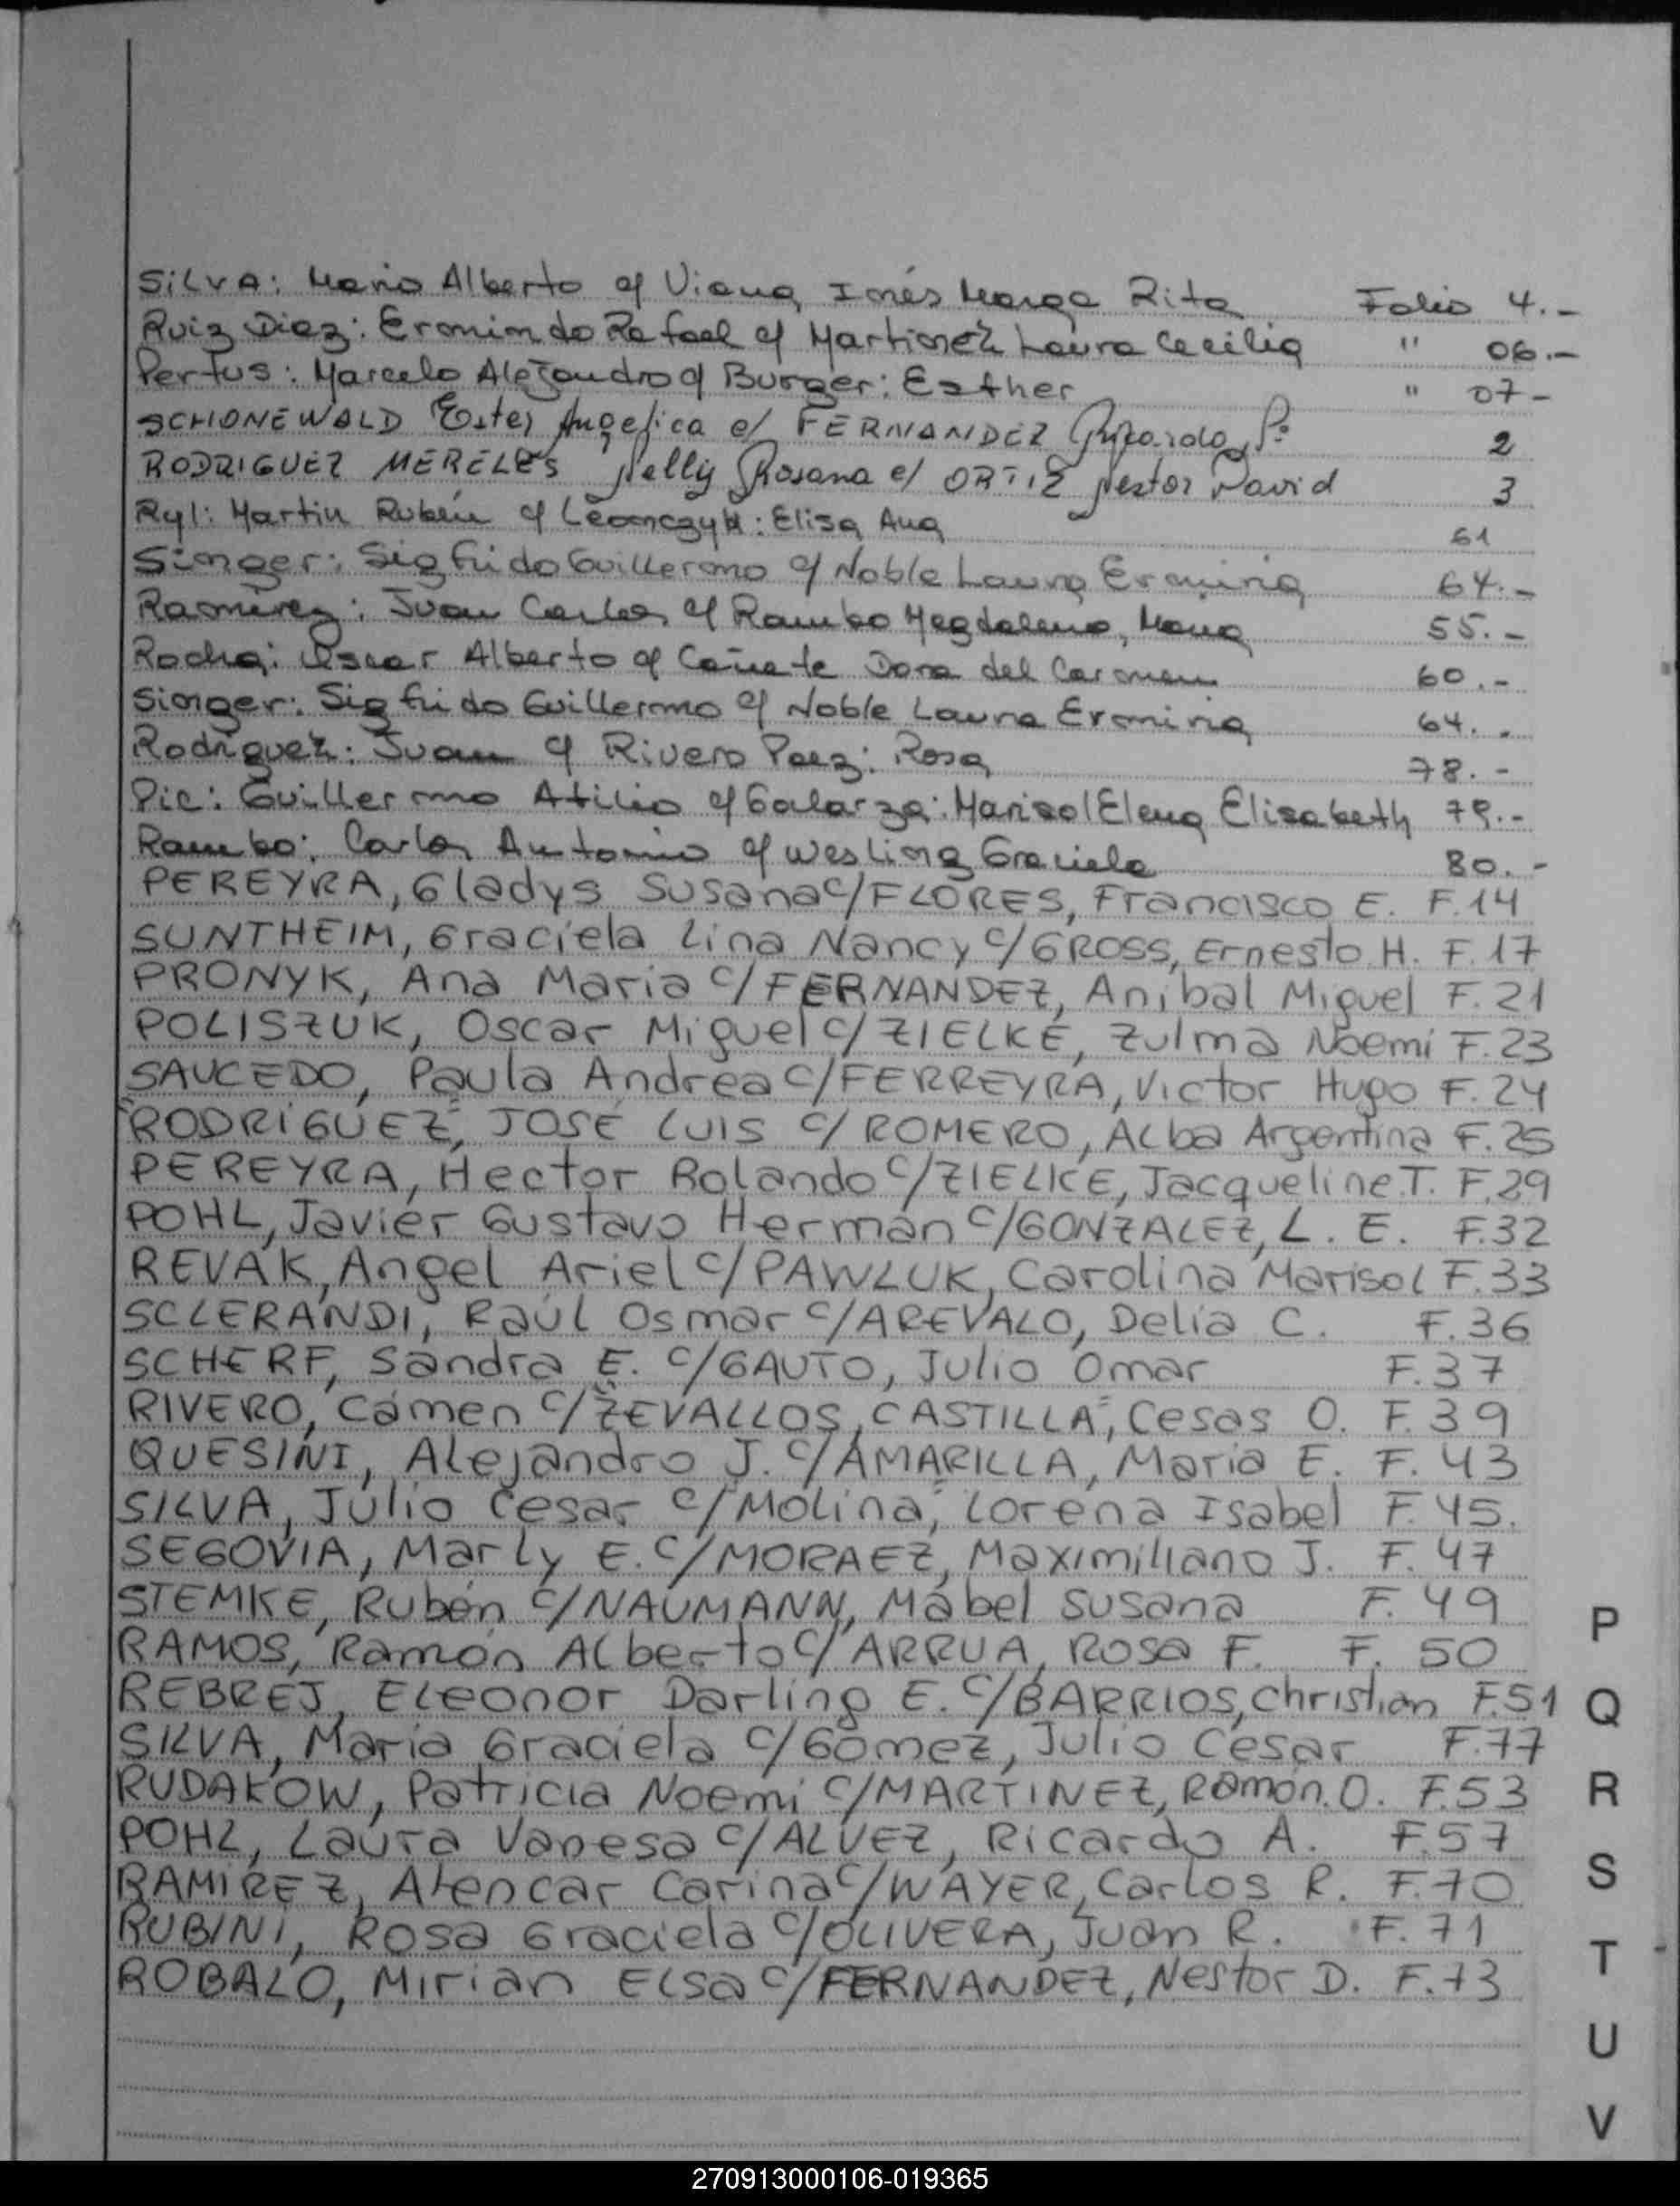 SILVA: Mario Alberto c/ Viana Inés Marga Rita Folio 4.-
Ruiz Diaz: Ermindo Rafael c/ Martinez Laura Cecilia " 06.-
Pertus: Marcelo Alejandro c/ Burger: Esther " 07-
SCHONEWALD Ester Angelica c/ FERNANDEZ 2
RODRIGUEZ MERELES Nelly Rosana c/ ORTIZ Nestor David 3
Ryl: Martin Rubén c/ Leonczyk: Elisa Ana 61
Singer: Sigfrido Guillermo c/ Noble Laura Erminia 64.-
Ramirez: Juan Carlos c/ Rambo Magdalena, Maria 55.-
Rocha: Oscar Alberto c/ Cañete Dora del Carmen 60.-
Singer: Sigfrido Guillermo c/ Noble Laura Erminia 64..
Rodriguez: Juan c/ Rivero Paez: Rosa 78.-
Pic: Guillermo Atilio c/ Galarza: Marisol Elena Elisabeth 79.-
Rambo: Carlos Antonio c/ Wesling Graciela 80.-
PEREYRA, Gladys Susana c/FLORES, Francisco E. F.14
SUNTHEIM, Graciela Lina Nancy c/GROSS, Ernesto H. F.17
PRONYK, Ana Maria c/FERNANDEZ, Anibal Miguel F.21
POLISZUK, Oscar Miguel c/ZIELKE, Zulma Noemi F.23
SAUCEDO, Paula Andrea c/FERREYRA, Victor Hugo F.24
RODRIGUEZ, JOSÉ LUIS c/ROMERO, Alba Argentina F.25
PEREYRA, Hector Rolando c/ZIELKE, Jacqueline T. F.29
POHL, Javier Gustavo Hermán c/GONZALEZ, L. E. F.32
REVAK, Angel Ariel c/PAWLUK, Carolina Marisol F.33
SCLERANDI, Raúl Osmar c/AREVALO, Delia C. F.36
SCHERF, Sandra E. c/GAUTO, Julio Omar F.37
RIVERO, Cármen c/ZEVALLOS, CASTILLA, Cesas O. F.39
QUESINI, Alejandro J. c/AMARILLA, Maria E. F.43
SILVA, Julio Cesar c/Molina, Lorena Isabel F.45.
SEGOVIA, Marly E. c/MORAEZ, Maximiliano J. F.47
STEMKE, Rubén c/NAUMANN, Mábel Susana F.49
RAMOS, Ramón Alberto c/ARRUA, Rosa F. F.50
REBREJ, Eleonor Darling E. c/BARRIOS, Christian F.51
SILVA, Maria Graciela c/Gómez, Julio Cesar F.77
RUDAKOW, Patricia Noemi c/MARTINEZ, Ramón.O. F.53
POHL, Laura Vanesa c/ALVEZ, Ricardo A. F.57
RAMIREZ, Alencar Carina c/WAYER, Carlos R. F.70
RUBINI, Rosa Graciela c/OLIVERA, Juan R. F.71
ROBALO, Mirian Elsa c/FERNANDEZ, Nestor D. F.73
P
Q
R
S
T
U
V
270913000106-019365